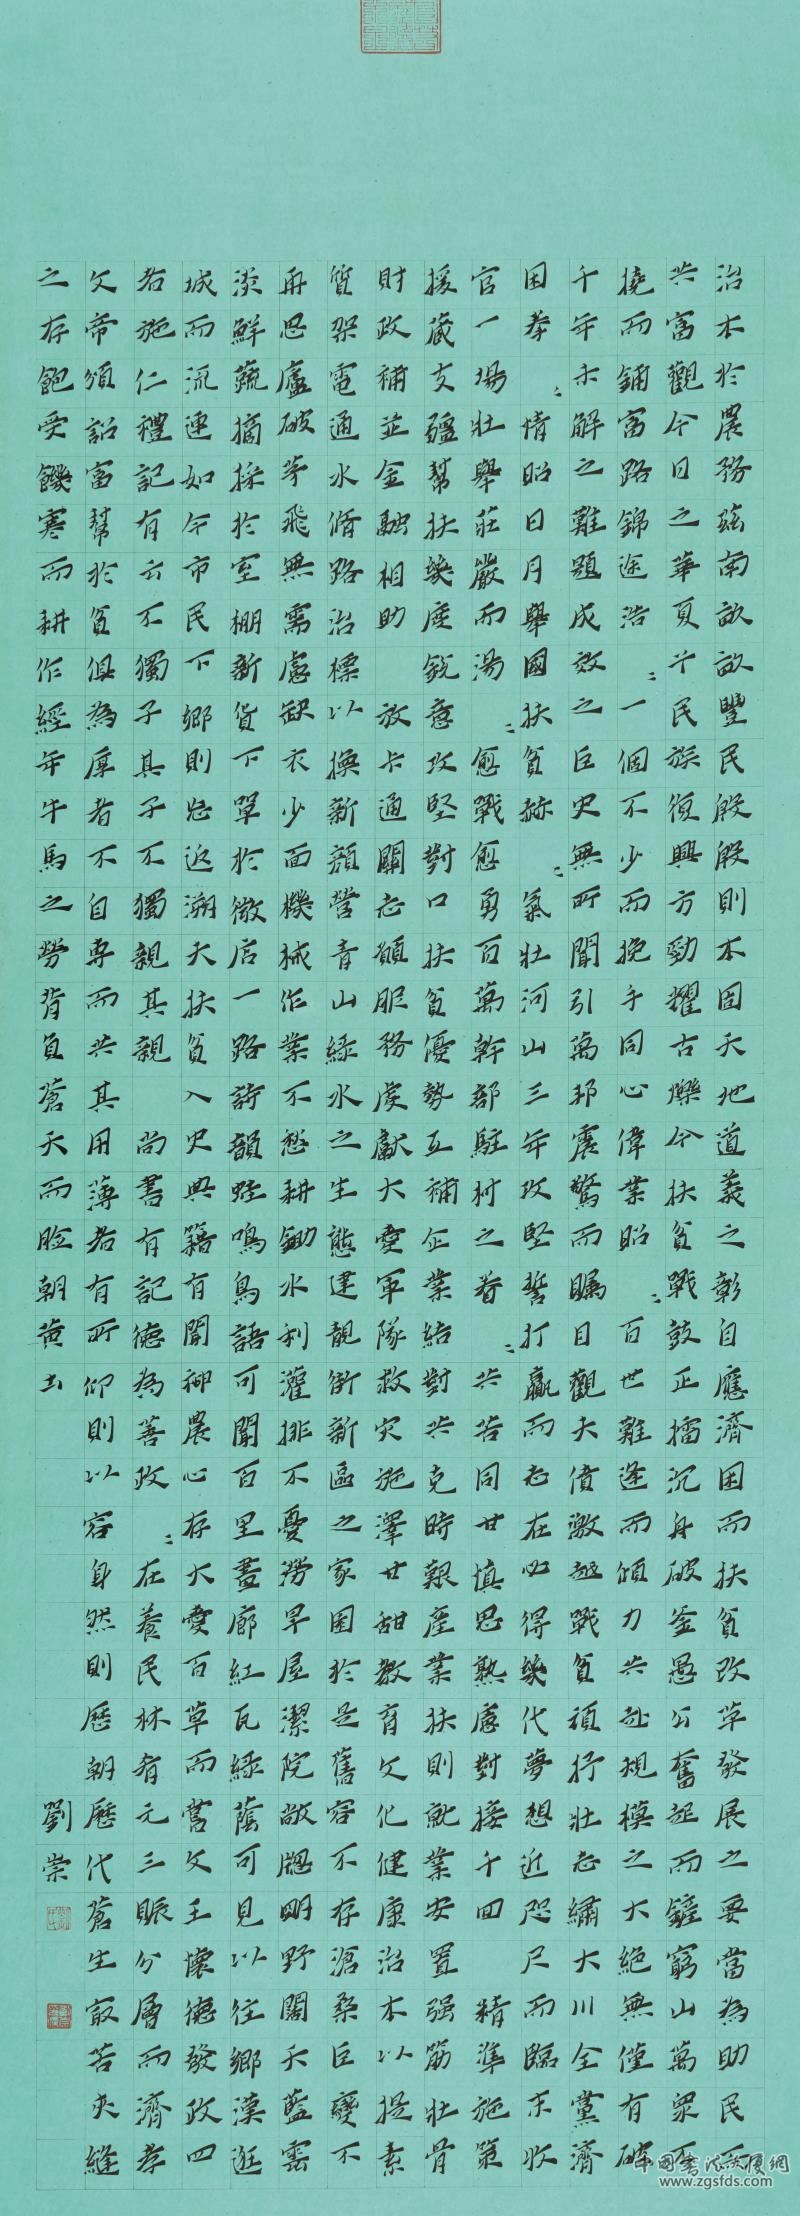 治本於農務兹南畝畝豐民殷殷則本固天地道義之彰自應濟困而扶貧改革發展之要當為助民而
共富觀今日之華夏民族復興方勁耀古爍今扶貧戰鼓正擂沉身破釜愚公奮起而鏟窮山萬眾不
撓而鋪富路錦途浩一個不少而挽手同心偉業昭百世難逢而傾力共赴規模之大絕無僅有破
千年未解之難題成效之巨史無所聞引萬邦震驚而矚目觀夫債激越戰貧頑抒壯志繡大川全黨濟
困摯情昭日月舉國扶貧赫氣壯河山三年攻堅誓打贏而志在必得幾代夢想近咫尺而臨末收
官一場壯舉莊嚴而湯愈戰愈勇百萬幹部駐村之着共苦同甘慎思熟慮對接千回精準施策
援藏支疆幫扶幾度銳意攻堅對口扶貧優勢互補企業結對共克時艱產業扶則就業安置強筋壯骨
財政補並金融相助放卡通關志願服務虔獻大愛軍隊救災施澤甘甜教育文化健康治本以提素
質架電通水脩路治標以換新顏營青山綠水之生態建靚街新區之家園於是舊容不存滄桑巨變不
再思廬破茅飛無需慮缺衣少面機械作業不愁耕鋤水利灌排不憂澇旱屋潔院敞牕明野闊天藍雲
淡鮮蔬摘採於室棚新貨下單於微店一路詩韻蛙鳴鳥語可聞百里畫廊紅瓦綠蔭可見以往鄉漢逛
城而流連如今市民下鄉則忘返溯夫扶貧入史典籍有聞神農心存大愛百草而嘗文王懷德發政四
者施仁禮記有云不獨子其子不獨親其親尚書有記德為善政在養民林有元三賑分層而濟孝
文帝頒詔富幫於貧俱為厚者不自專而共其用薄若有所仰則以容身然則歷朝歷代蒼生最苦夾縫
之存飽受饑寒而耕作經年牛馬之勞背負蒼天而臉朝黃土
劉崇
中國書法共享網
www.zgsfds.com